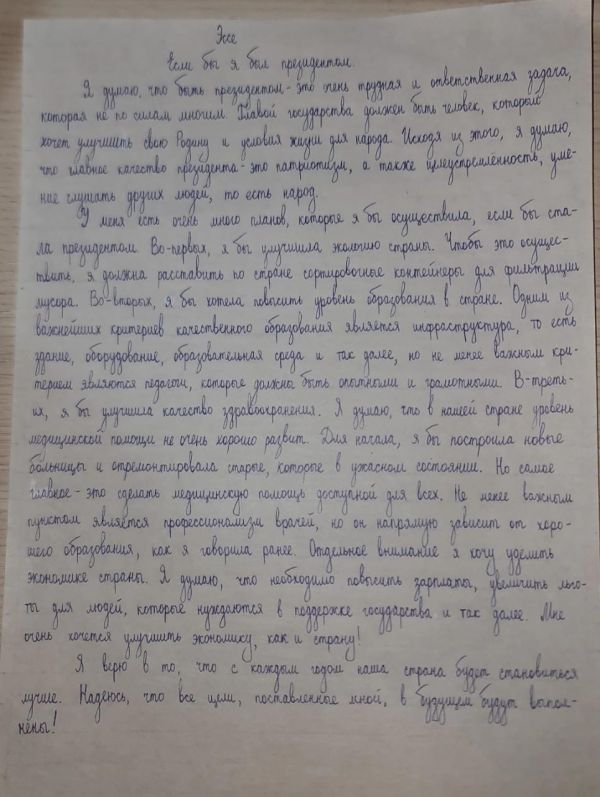 Эссе
Если бы я был президентом.
Я думаю, что быть президентом - это очень трудная и ответственная задача,
которая не по силам многим. Главой государства должен быть человек, который
хочет улучшить свою Родину и условия жизни для народа. Исходя из этого, я думаю,
что главное качество президента - это патриотизм, а также целеустремлённость, уме-
ние слушать других людей, то есть народ.
У меня есть очень много планов, которые я бы осуществила, если бы ста-
ла президентом. Во-первых, я бы улучшила экологию страны. Чтобы это осущес-
твить, я должна расставить по стране сортировочные контейнеры для фильтрации
мусора. Во-вторых, я бы хотела повысить уровень образования в стране. Одним из
важнейших критериев качественного образования является инфраструктура, то есть
здание, оборудование, образовательная среда и так далее, но не менее важным кри-
терием являются педагоги, которые должны быть опытными и грамотными. В-треть-
их, я бы улучшила качество здравоохранения. Я думаю, что в нашей стране уровень
медицинской помощи не очень хорошо развит. Для начала, я бы построила новые
больницы и отремонтировала старые, которые в ужасном состоянии. Но самое
главное - это сделать медицинскую помощь доступной для всех. Не менее важным
пунктом является профессионализм врачей, но он напрямую зависит от хоро-
шего образования, как я говорила ранее. Отдельное внимание я хочу уделить
экономике страны. Я думаю, что необходимо повысить зарплаты, увеличить льго-
ты для людей, которые нуждаются в поддержке государства и так далее. Мне
очень хочется улучшить экономику, как и страну!
Я верю в то, что с каждым годом наша страна будет становиться
лучше. Надеюсь, что все цели, поставленные мной, в будущем будут выпол-
нены!